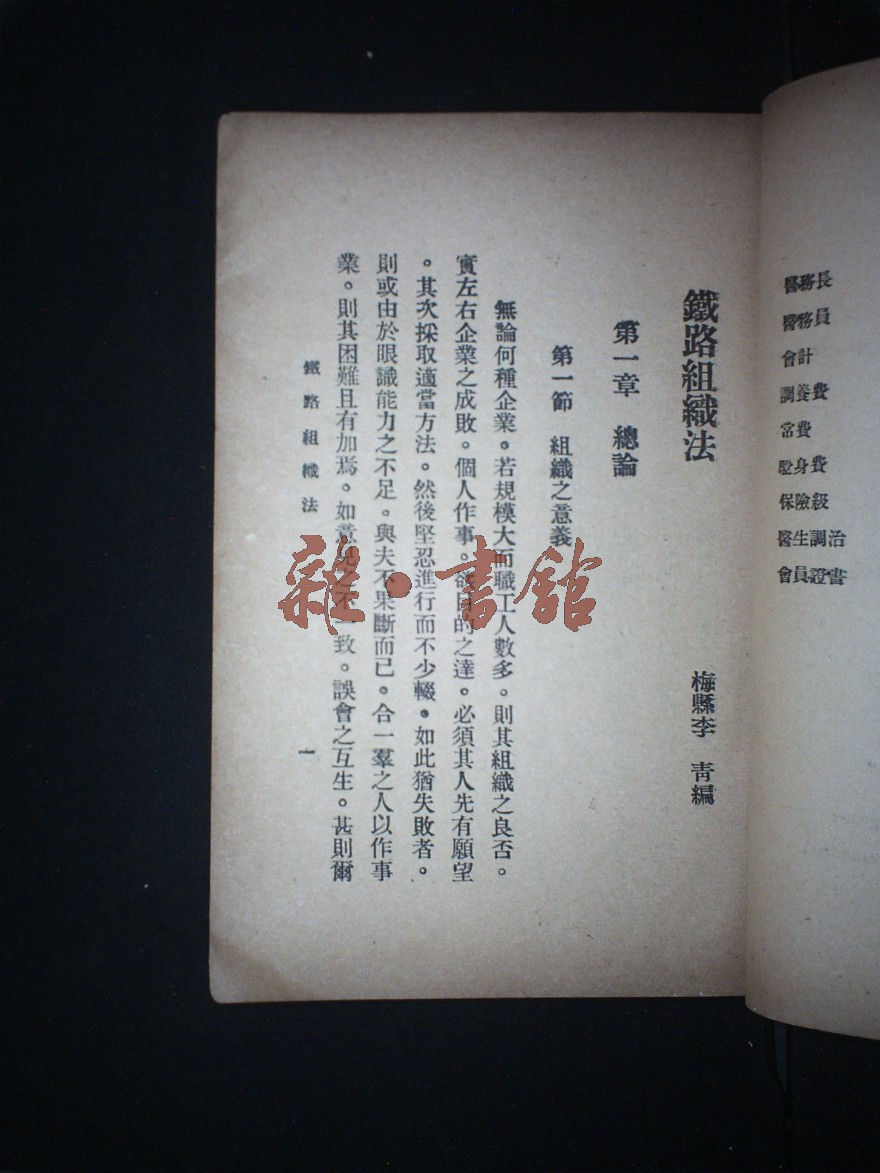 醫務長
醫務員
會計
調養費
常費
驗身費
保險級
醫生調治
會員證書
鐵路組織法
梅縣李 靑編
第一章 總論
第一節 組織之意義
無論何種企業。若規模大而職工人數多。則其組織之良否。
實左右企業之成敗。個人作事。欲目的之達。必須其人先有願望
。其次採取適當方法。然後堅忍進行而不少輟。如此猶失敗者。
則或由於眼識能力之不足。與夫不果斷而已。合一羣之人以作事
業。則其困難且有加焉。如意見之不一致。誤會之互生。甚則爾
鐵路組織法
一
雜·書館